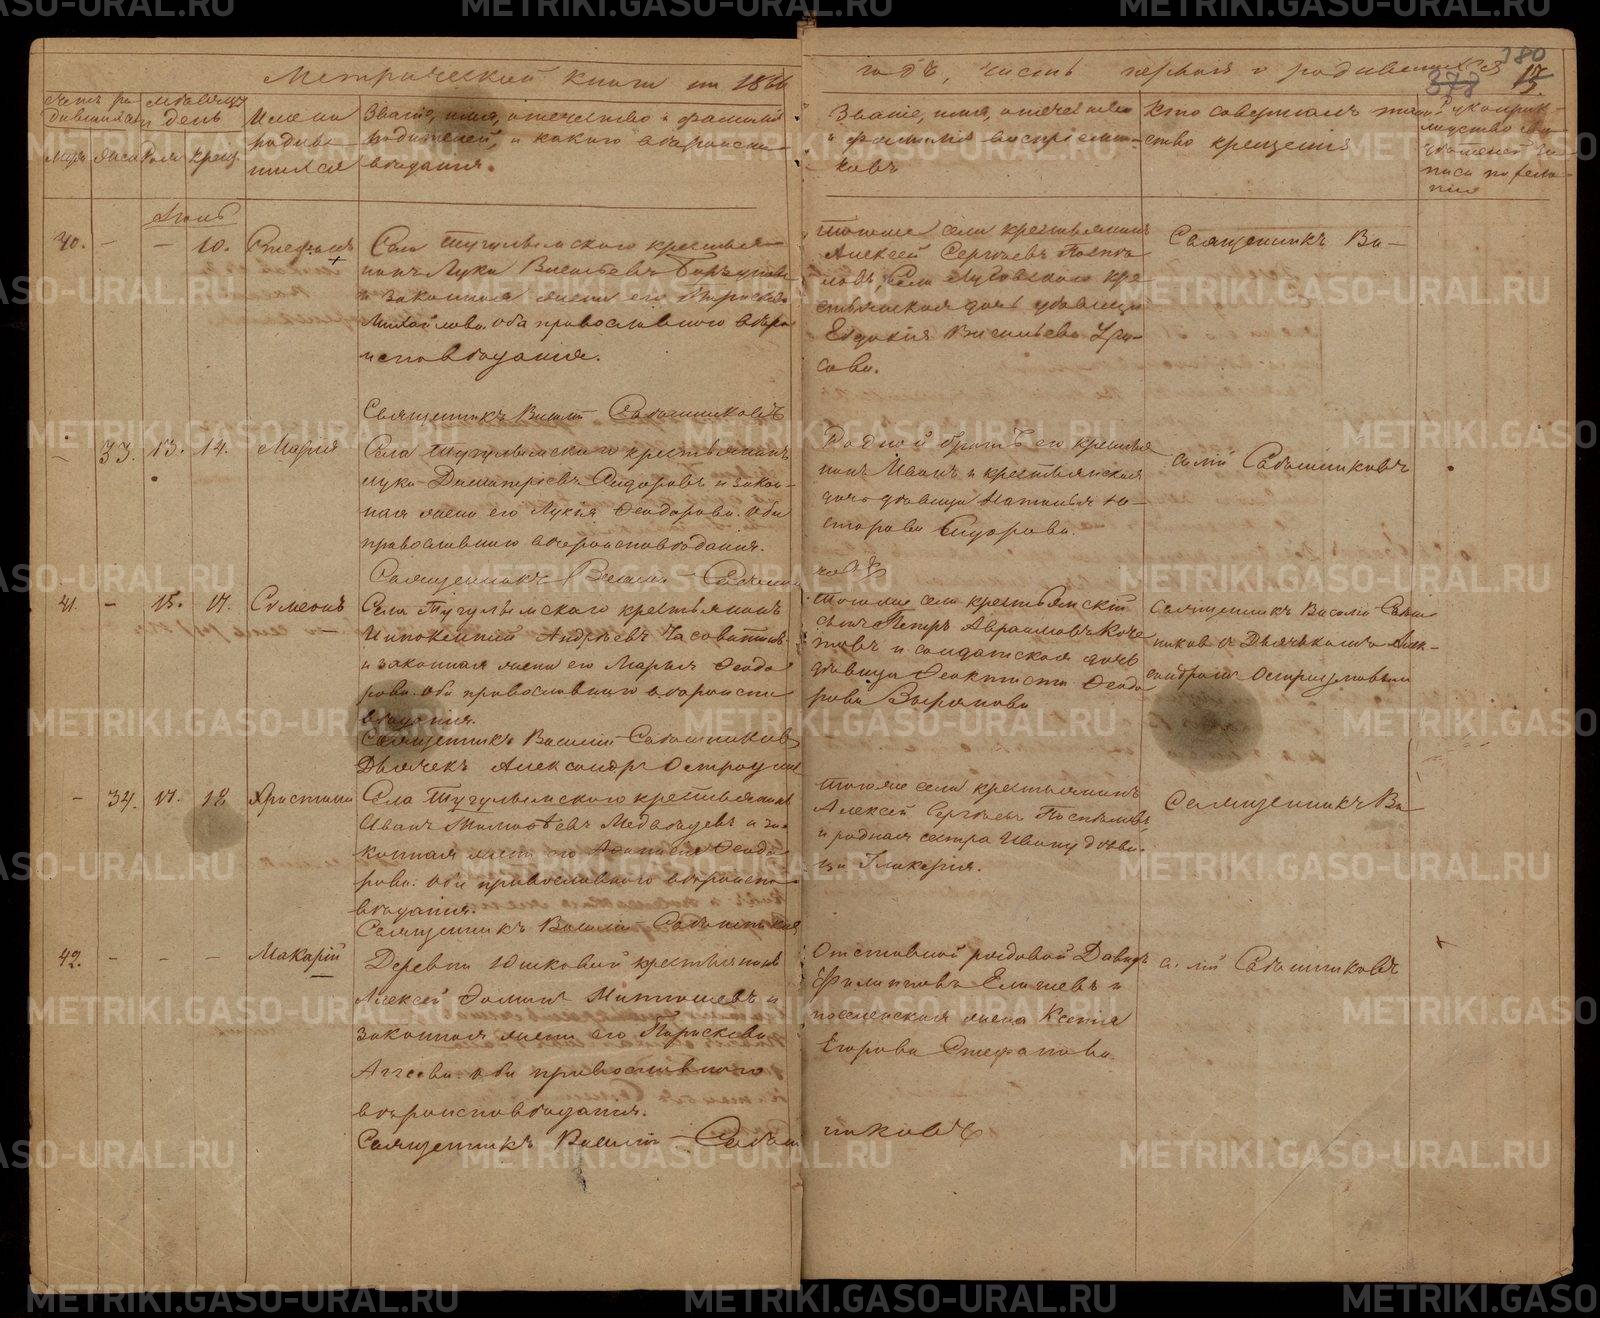 Метрической книги на 1866
годъ, часть первая о родившихся
380
378
17
Счетъ родившихся
Месяцъ и день
Имена родившихся
Званіе, имя, отечество и фамилія
родителей, и какого вероиспо-
веданія.
Званіе, имя, отечество
и фамилія воспріемни-
ковъ
Кто совершалъ таин-
ство крещенія
Рукоприк-
ладство сви-
детелей за-
писи по жела-
нію
Муж. Жен. Рож. Крещ.
40. – – 10. Стефанъ
Села Тугулымского крестья-
нинъ Лука Васильевъ
и законная жена его Параскева
Михайлова. оба православного веро
исповеданія.
Священникъ Василій Сабашниковъ
тогоже села крестьянинъ
Алексей Сергеевъ
кре-
стьянская дочь девица
Евдокія Васильева
Священникъ Ва-
– 33. 13. 14. Марія
Села Тугулымского крестьянинъ
Лука Димитріевъ Сидоровъ и закон-
ная жена его Лукія Феодорова. оба
православного вероисповеданія.
Священникъ Василій Сабашни
Родной братъ его крестья
нинъ Иванъ и крестьянская
дочь девица Наталья
Сидорова.
силій Сабашниковъ
41. – 15. 17. Симеонъ
Села Тугулымского крестьянинъ
Иннокентій Андреевъ Часовитинъ
и законная жена его Марья Феодо
рова. оба православного вероиспо
веданія.
Священникъ Василій Сабашниковъ
Дьячекъ Александръ Остроумовъ
тогоже села крестьянскій
сынъ Петръ Авраамовъ Коче
товъ и солдатская дочь
девица Феоктиста Феодо
рова
Священникъ Василій Сабаш
никовъ съ Дьячькомъ Алек-
сандромъ Остроумовымъ
– 34. 17. 18 Христина
Села Тугулымского крестьянинъ
Иванъ Тимофеевъ Медведевъ и за-
конная жена его Феодо
рова. оба православного вероиспо
веданія.
Священникъ Василій Сабашников
тогоже села крестьянинъ
Алексей Сергеевъ Поспеловъ
и родная сестра Ивану деви-
ца Гликерія.
Священникъ Ва
42. – – – Макарій
Деревни Юшковой крестьянинъ
Алексей Фоминъ и
законная жена его Параскева
Аггеева. оба православного
вероисповеданія.
Священникъ Василій Сабаш
никовъ
Отставной рядовой Давидъ
Филипповъ и
поселенская жена Ксенія
Егорова Стефанова
силій Сабашниковъ
METRIKI.GASO-URAL.RU